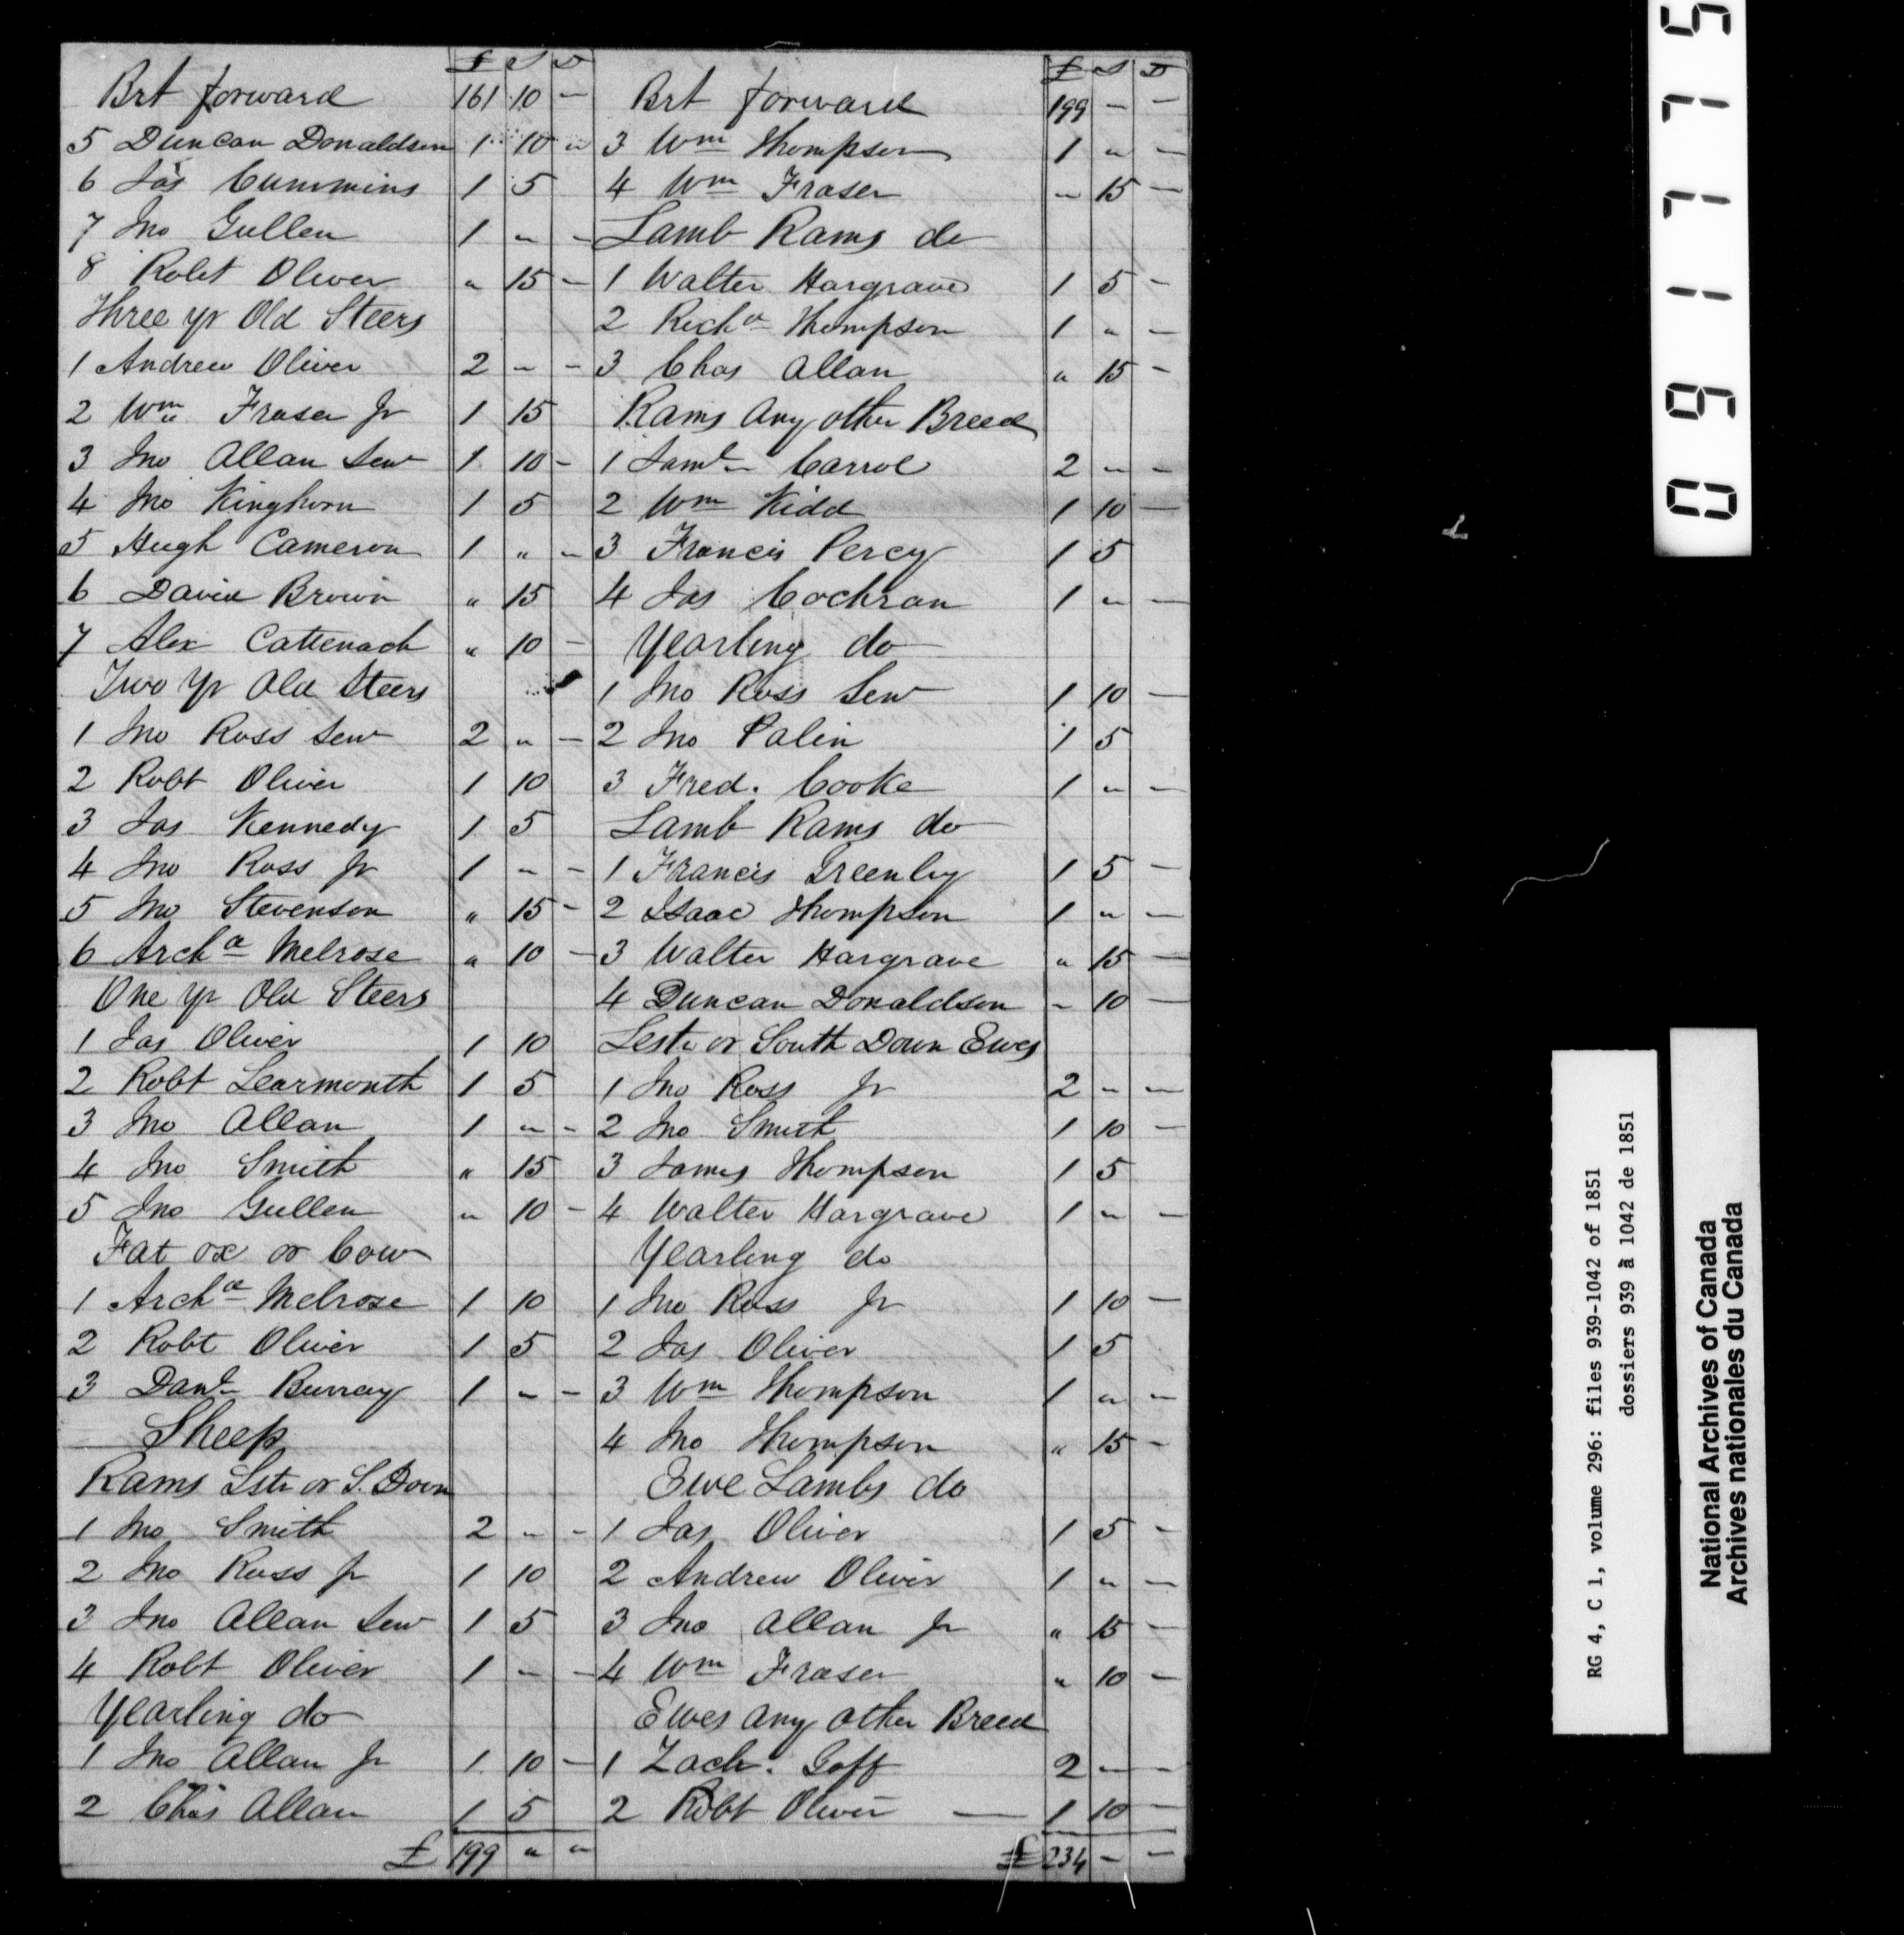 £ S D
Brt forward 161 10 –
5 Duncan Donaldson 1 10 "
6 Jas Cummins 1 5
7 Jno Gullen 1 " –
8 Robt Oliver " 15 –
Three yr Old Steers
1 Andrew Oliver 2 – –
2 Wm Fraser Jr 1 15
3 Jno Allan Senr 1 10 –
4 Jno Kinghorn 1 5
5 Hugh Cameron 1 " –
6 David Brown " 15
7 Alex Cattenach " 10 –
Two Yr Old Steers
1 Jno Ross Senr 2 " –
2 Robt Oliver 1 10
3 Jas Kennedy 1 5
4 Jno Ross Jr 1 – –
5 Jno Stevenson " 15 –
6 Archd Melrose " 10 –
One yr Old Steers
1 Jas Oliver 1 10
2 Robt Learmonth 1 5
3 Jno Allan 1 " –
4 Jno Smith " 15
5 Jno Gullen " 10 –
Fat ox or Cow
1 Archd Melrose 1 10
2 Robt Oliver 1 5
3 Danl Burray 1 – –
Sheep
Rams Lstr or S. Down
1 Jno Smith 2 – –
2 Jno Ross Jr 1 10
3 Jno Allan Senr 1 5
4 Robt Oliver 1 – –
Yearling do
1 Jno Allan Jr 1 10 –
2 Chas Allan 1 5
£ 199 " "
£ S D
Brt forward 199 – –
3 Wm Thompson 1 " –
4 Wm Fraser – 15 –
Lamb Rams do
1 Walter Hargrave 1 5 –
2 Richd Thompson 1 " –
3 Chas Allan " 15 –
Rams Any other Breed
1 Saml Carrol 2 " –
2 Wm Kidd 1 10 –
3 Francis Percy 1 5
4 Jas Cochran 1 " –
Yearling do
1 Jno Ross Senr 1 10 –
2 Jno Palin 1 5
3 Fred. Cooke 1 " –
Lamb Rams do
1 Francis Greenley 1 5 –
2 Isaac Thompson 1 " –
3 Walter Hargrave " 15 –
4 Duncan Donaldson – 10 –
Lestr or South Down Ewes
1 Jno Ross Jr 2 – –
2 Jno Smith 1 10 –
3 James Thompson 1 5
4 Walter Hargrave 1 " –
Yearling do
1 Jno Ross Jr 1 10 –
2 Jas Oliver 1 5
3 Wm Thompson 1 " –
4 Jno Thompson " 15 –
Ewe Lambs do
1 Jas Oliver 1 5 –
2 Andrew Oliver 1 " –
3 Jno Allan Jr " 15 –
4 Wm Fraser " 10 –
Ewes any other Breed
1 Zach. Goff 2 – –
2 Robt Oliver — 1 10 –
£ 234 – –
091775
RG 4, C 1, volume 296: files 939-1042 of 1851
dossiers 939 à 1042 de 1851
National Archives of Canada
Archives nationales du Canada